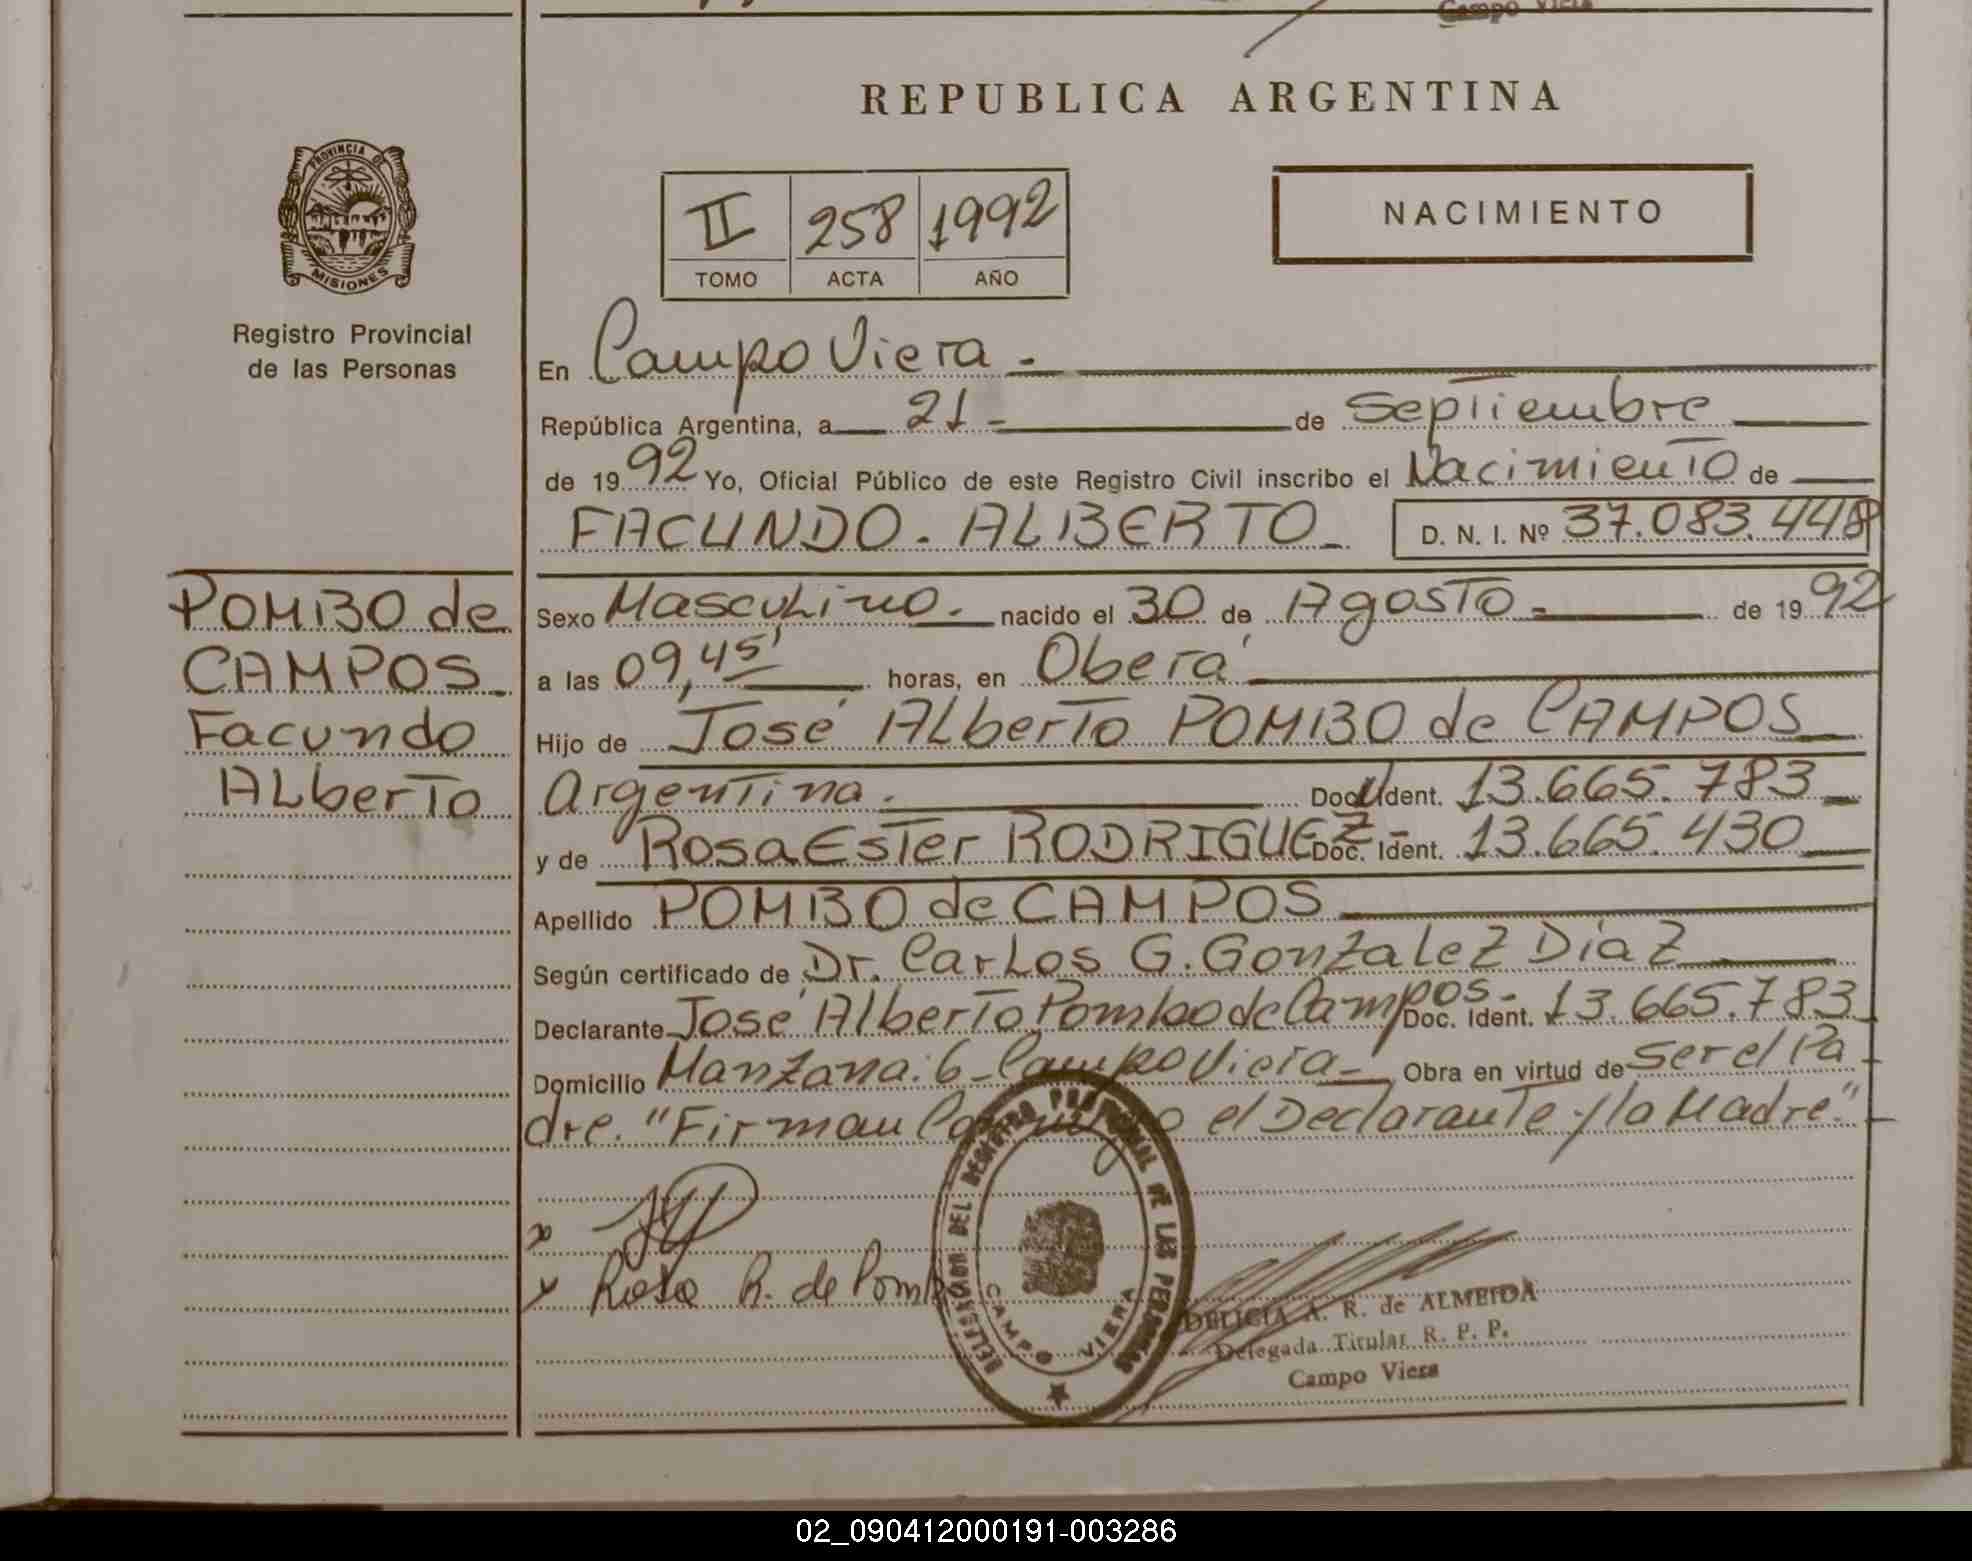 Campo Viera
REPUBLICA ARGENTINA
PROVINCIA DE
MISIONES
Registro Provincial
de las Personas
II 258 1992
TOMO ACTA AÑO
NACIMIENTO
En Campo Viera.-
República Argentina, a 21- de Septiembre
de 1992 Yo, Oficial Público de este Registro Civil inscribo el Nacimiento de
FACUNDO. ALBERTO- D. N. I. Nº 37.083.448
POMBO de
CAMPOS.
Facundo
Alberto
Sexo Masculino.- nacido el 30 de Agosto- de 1992
a las 09,45' horas, en Oberá
Hijo de José Alberto POMBO de CAMPOS
Argentina. Doc. Ident. 13.665.783
y de Rosa Ester RODRIGUEZ- Doc. Ident. 13.665.430
Apellido POMBO de CAMPOS
Según certificado de Dr. Carlos G. Gonzalez Diaz
Declarante José Alberto Pombo de Campos- Doc. Ident. 13.665.783
Domicilio Manzana: 6- Campo Viera- Obra en virtud de ser el Pa-
dre. "Firman Conmigo el Declarante y la Madre"-
x
x Rosa R. de Pombo
DELEGACION DEL REGISTRO PROVINCIAL DE LAS PERSONAS
CAMPO VIERA
DELICIA A. R. de ALMEIDA
Delegada Titular R. P. P.
Campo Viera
02_090412000191-003286